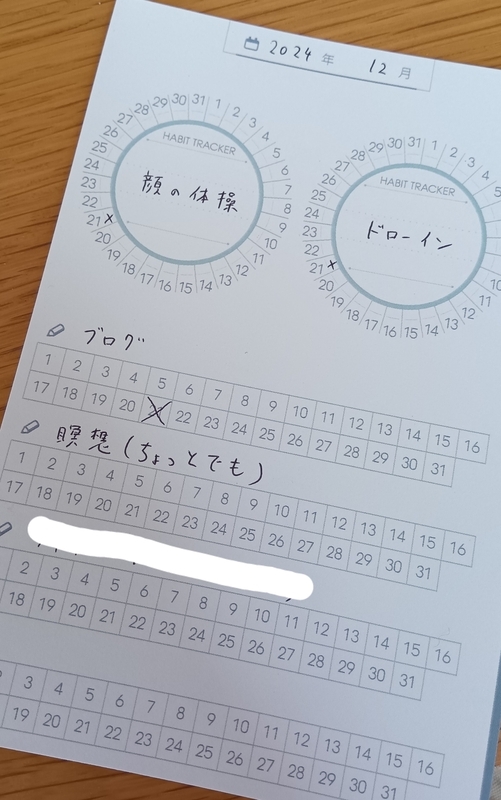 2024 年 12 月
HABIT TRACKER
顔の体操
1 2 3 4 5 6 7 8 9 10 11 12 13 14 15 16 17 18 19 20 21 x 22 23 24 25 26 27 28 29 30 31
HABIT TRACKER
ドローイン
1 2 3 4 5 10 11 12 13 14 15 16 17 18 19 20 21 x 22 23 24 25 26 27 28 29 30 31
ブログ
1 2 3 4 5 6 7 8 9 10 11 12 13 14 15 16
17 18 19 20 X 22 23 24 25 26 27 28 29 30 31
瞑想(ちょっとでも)
1 2 3 4 5 6 7 8 9 10 11 12 13 14 15 16
17 18 19 20 21 22 23 24 25 26 27 28 29 30 31
2 3 4 5 6 7 8 9 10 11 12 13 14 15 16
18 19 20 21 22 23 24 25 26 27 28 29 30 31
3 4 5 6 7 8 9 10 11 12 13 14 15 16
19 20 21 22 23 24 25 26 27 28 29 30 31